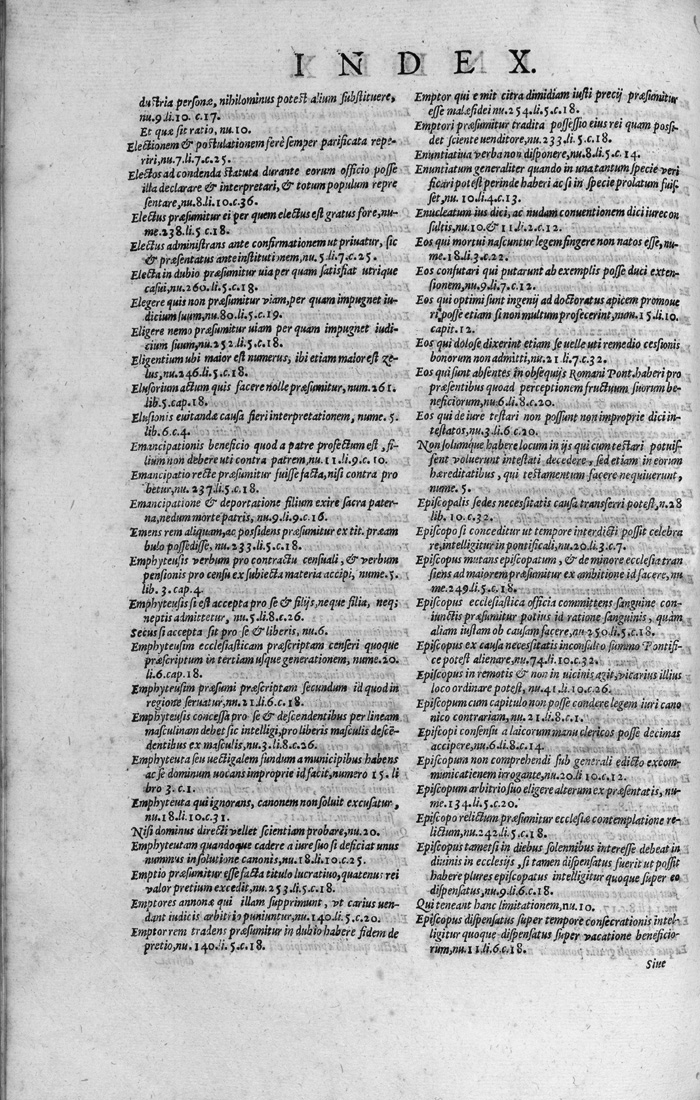 INDEX.
dustria personæ, nihilominus potest alium substituere,
nu.9.li.10. c.17.
Et quæ sit ratio, nu.10.
Electionem & postulationem ferè semper parificata repe-
riri, nu.7.li.7.c.25.
Electos ad condenda statuta durante eorum officio posse
illa declarare & interpretari, & totum populum repre
sentare, nu.8.li.10.c.36.
Electus præsumitur ei per quem electus est gratus fore, nu-
me.238.li.5 c.18.
Electus administrans ante confirmationem ut priuatur, sic
& præsentatus ante institutionem, nu.5.li.7.c.25.
Electa in dubio præsumitur uia per quam satisfiat utrique
casui, nu.260.li.5.c.18.
Elegere quis non præsumitur viam, per quam impugnet iu-
dicium suum, nu.80.li.5.c.19.
Eligere nemo præsumitur uiam per quam impugnet iudi-
cium suum, nu.252.li.5.c.18.
Eligentium ubi maior est numerus, ibi etiam maior est ze-
lus, nu.246.li.5.c.18.
Elusorium actum quis facere nolle præsumitur, num.261.
lib.5.cap.18.
Elusionis euitandæ causa fieri interpretationem, nume.5.
lib.6.c.4.
Emancipationis beneficio quod a patre profectum est, fi-
lium non debere uti contra patrem, nu.11.li.9.c.10.
Emancipatio recte præsumitur fuisse facta, nisi contra pro
betur, nu.237.li.5.c.18.
Emancipatione & deportatione filium exire sacra pater-
na, nedum morte patris, nu.9.li.9.c.16.
Emens rem aliquam, ac possidens præsumitur ex tit. præam
bulo possedisse, nu.233.li.5.c.18.
Emphyteusis verbum pro contractu censuali, & verbum
pensionis pro censu ex subiecta materia accipi, nume.5.
lib.3.cap.4.
Emphyteusis si est accepta pro se & filijs, neque filia, neq;
neptis admittetur, nu.5.li.8.c.26.
Secus si accepta sit pro se & liberis, nu.6.
Emphyteusim ecclesiasticam præscriptam censeri quoque
præscriptum in tertiam usque generationem, nume.20.
li.6.cap.18.
Emphyteusim præsumi præscriptam secundum id quod in
regione seruatur, nu.21.li.6.c.18.
Emphyteusis concessa pro se & descendentibus per lineam
masculinam debet sic intelligi, pro liberis masculis descē-
dentibus ex masculis, nu.3.li.8.c.26.
Emphyteuta seu uectigalem fundum a municipibus habens
ac se dominum uocans improprie id facit, numero 15. li
bro 3. c.1.
Emphyteuta qui ignorans, canonem non soluit excusatur,
nu.18.li.10.c.31.
Nisi dominus directi vellet scientiam probare, nu.20.
Emphyteutam quandoque cadere a iure suo si deficiat unus
nummus in solutione canonis, nu.18.li.10.c.25.
Emptio præsumitur esse facta titulo lucratiuo, quatenus rei
valor pretium excedit, nu.253.li.5.c.18.
Emptores annonæ qui illam supprimunt, ut carius uen-
dant iudicis arbitrio puniuntur, nu.140.li.5.c.20.
Emptor rem tradens præsumitur in dubio habere fidem de
pretio, nu. 140.li.5.c.18.
Emptor qui emit citra dimidiam iusti precij præsumitur
esse malæ fidei nu.254.li.5.c.18.
Emptori præsumitur tradita possessio eius rei quam possi-
det sciente uenditore, nu.233.li.5.c.18.
Enuntiatiua verba non disponere, nu.8.li.5.c.14.
Enuntiatum generaliter quando in una tantum specie veri
ficari potest perinde haberi ac si in specie prolatum fuis-
set, nu.10.li.4.c.13.
Enucleatum ius dici, ac nudam conuentionem dici iurecon
sultis, nu.10.& 11.li.2.c.12.
Eos qui mortui nascuntur legem fingere non natos esse, nu-
me.18.li.3.c.22.
Eos confutari qui putarunt ab exemplis posse duci exten-
sionem, nu.9.li.7.c.12.
Eos qui optimi sunt ingenij ad doctoratus apicem promoue
ri posse etiam si non multum profecerint, num.15.li.10.
capit.12.
Eos qui dolose dixerint etiam se uelle uti remedio cessionis
bonorum non admitti, nu.21.li.7.c.32.
Eos qui sunt absentes in obsequijs Romani Pont. haberi pro
præsentibus quoad perceptionem fructuum suorum be-
neficiorum, nu.6.li.8.c.20.
Eos qui de iure testari non possunt non improprie dici in-
testatos, nu.3.li.6.c.20.
Non solumque habere locum in ijs qui cum testari potuis-
sent voluerunt intestati decedere, sed etiam in eorum
hæreditatibus, qui testamentum facere nequiuerunt,
nume. 5.
Episcopalis sedes necessitatis causa transferri potest, n.28
lib. 10.c.32.
Episcopo si conceditur ut tempore interdicti possit celebra
re, intelligitur in pontificali, nu.20.li.3.c.7.
Episcopus mutans episcopatum, & de minore ecclesia tran
siens ad maiorem præsumitur ex ambitione id facere, nu
me.249.li.5.c.18.
Episcopus ecclesiastica officia committens sanguine con-
iunctis præsumitur potius id ratione sanguinis, quàm
aliam iustam ob causam facere, nu 250.li.5.c.18.
Episcopus ex causa necessitatis inconsulto summo Pontifi-
ce potest alienare, nu.74.li.10.c.32.
Episcopus in remotis & non in uicinis agit, vicarius illius
loco ordinare potest, nu.41.li.10.c.26.
Episcopum cum capitulo non posse condere legem iuri cano
nico contrariam, nu.21.li.8.c.1.
Episcopi consensu a laicorum manu clericos posse decimas
accipere, nu.6.li.8.c.14.
Episcopum non comprehendi sub generali edicto excom-
municationem irrogante, nu.20 li 10.c.12.
Episcopum arbitrio suo eligere alterum ex præsentatis, nu-
me.134.li.5.c.20.
Episcopo relictum præsumitur ecclesiæ contemplatione re-
lictum, nu.242.li.5.c.18.
Episcopus tametsi in diebus solennibus interesse debeat in
diuinis in ecclesijs, si tamen dispensatus fuerit ut possit
habere plures episcopatus intelligitur quoque super eo
dispensatus, nu.9.li.6.c.18.
Qui teneant hanc limitationem, nu.10.
Episcopus dispensatus super tempore consecrationis intel-
ligitur quoque dispensatus super vacatione beneficio-
rum, nu.11.li.6.c.18.
Siue